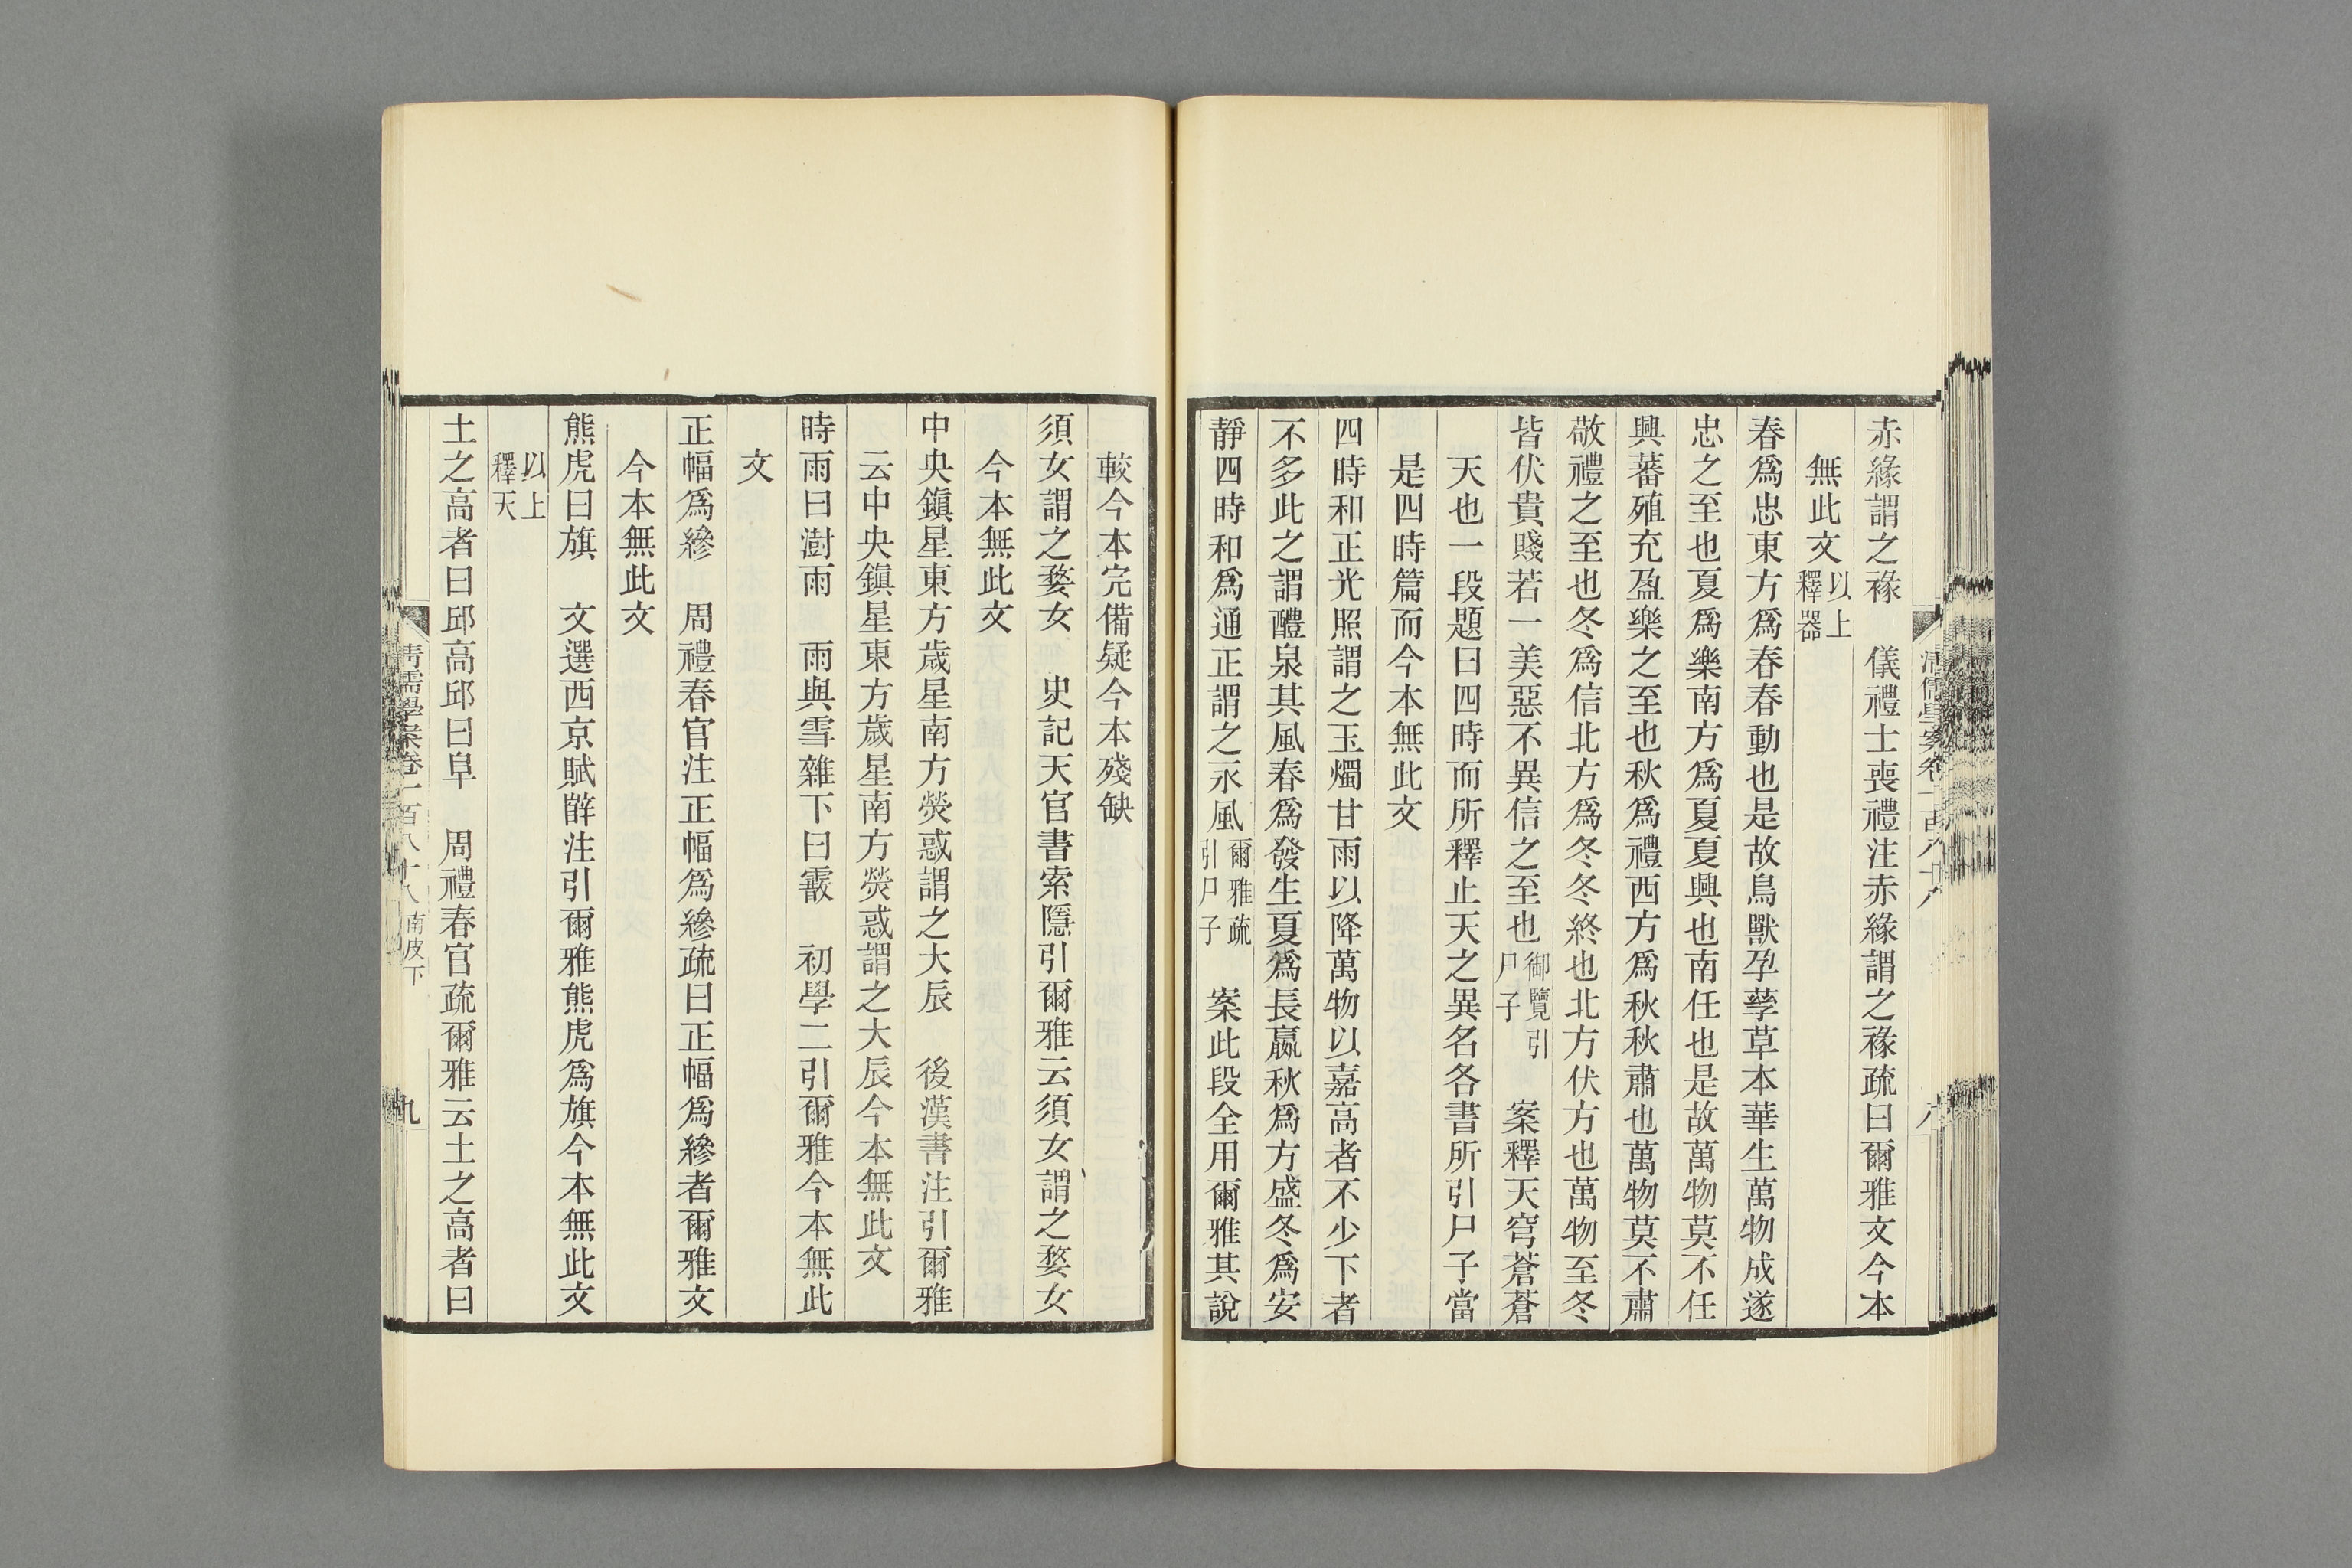 赤緣謂之褖　儀禮士喪禮注赤緣謂之褖疏曰爾雅文今本
無此文以上釋器
春爲忠東方爲春春動也是故鳥獸孕孶草本華生萬物成遂
忠之至也夏爲樂南方爲夏夏興也南任也是故萬物莫不任
興蕃殖充盈樂之至也秋爲禮西方爲秋秋肅也萬物莫不肅
敬禮之至也冬爲信北方爲冬冬終也北方伏方也萬物至冬
皆伏貴賤若一美惡不異信之至也御覽引尸子　案釋天穹蒼蒼
天也一段題曰四時而所釋止天之異名各書所引尸子當
是四時篇而今本無此文
四時和正光照謂之玉燭甘雨以降萬物以嘉高者不少下者
不多此之謂醴泉其風春爲發生夏爲長嬴秋爲方盛冬爲安
靜四時和爲通正謂之永風爾雅疏引尸子　案此段全用爾雅其說
較今本完備疑今本殘缺
須女謂之婺女　史記天官書索隱引爾雅云須女謂之婺女
今本無此文
中央鎭星東方歲星南方熒惑謂之大辰　後漢書注引爾雅
云中央鎭星東方歲星南方熒惑謂之大辰今本無此文
時雨曰澍雨　雨與雪雜下曰霰　初學二引爾雅今本無此
文
正幅爲縿　周禮春官注正幅爲縿疏曰正幅爲縿者爾雅文
今本無此文
熊虎曰旗　文選西京賦辥注引爾雅熊虎爲旗今本無此文
以上釋天
土之高者曰邱高邱曰阜　周禮春官疏爾雅云土之高者曰
清儒學案卷一百八十八　南皮下　九